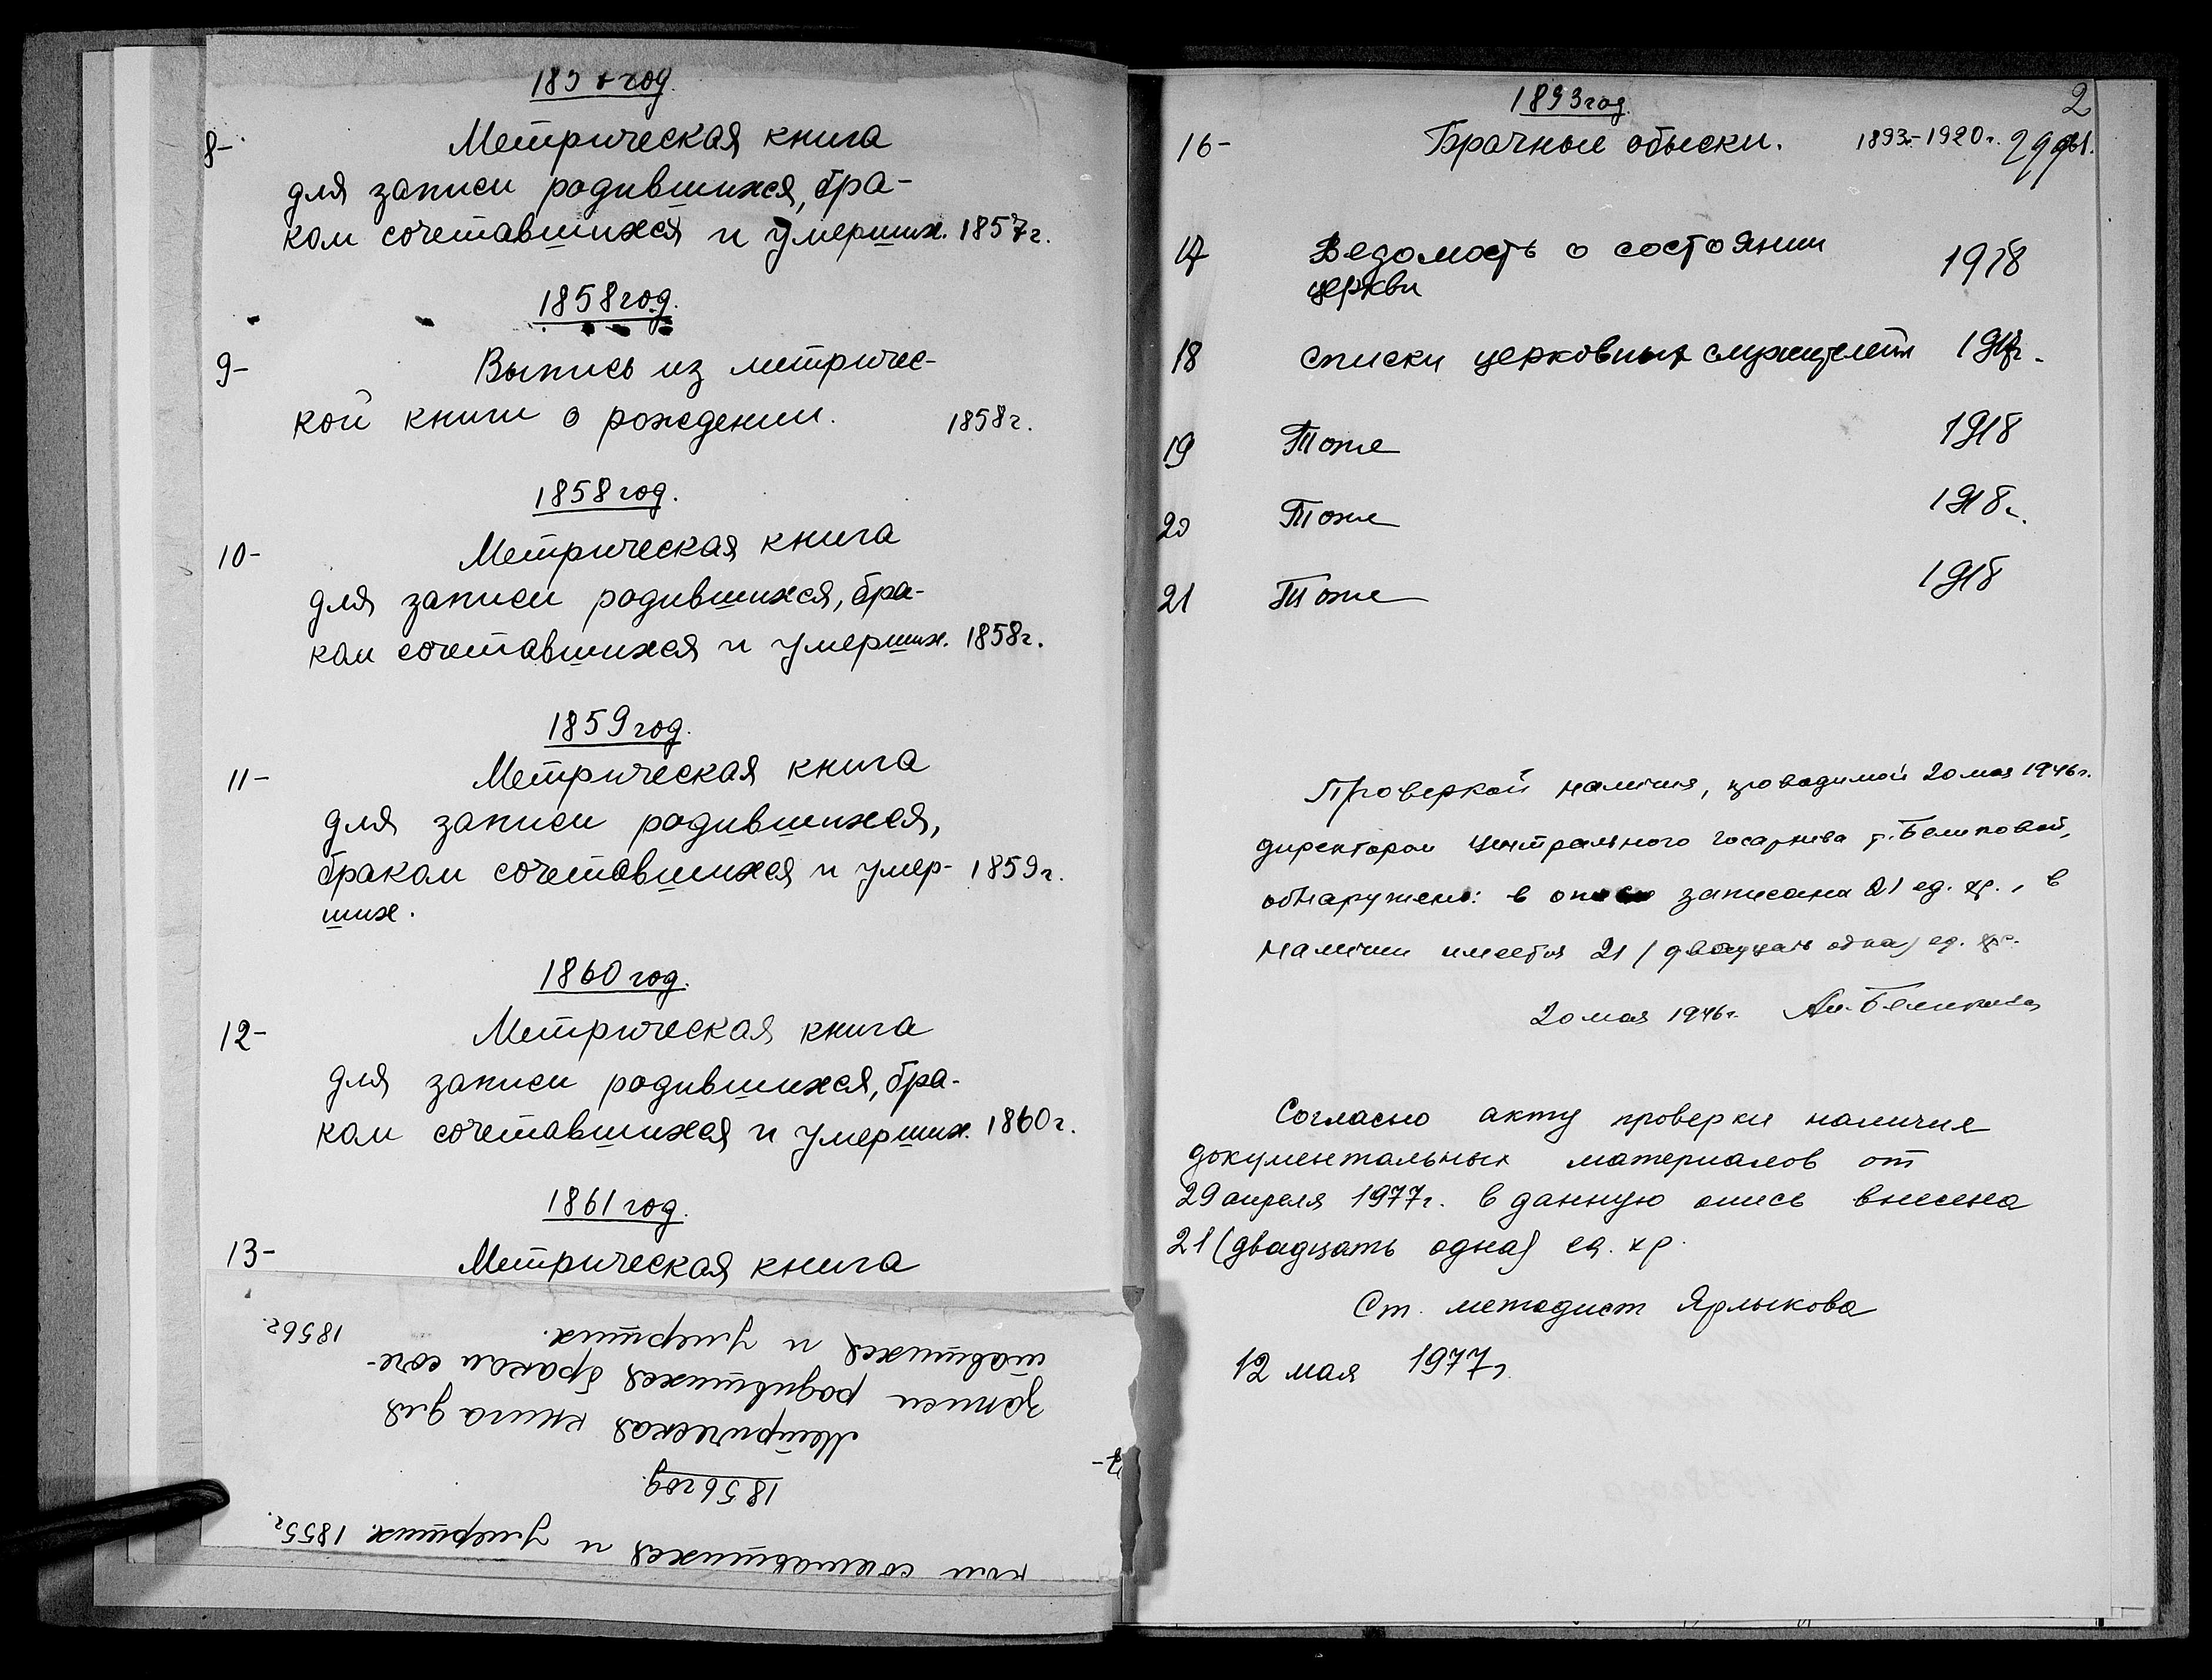 1857 год.
8- Метрическая книга
для записи родившихся, бра-
ком сочетавшихся и умерших. 1857г.
1858 год.
9- Выпись из метричес-
кой книги о рождении. 1858г.
1858 год.
10- Метрическая книга
для записи родившихся, бра-
ком сочетавшихся и умерших. 1858г.
1859 год.
11- Метрическая книга
для записи родившихся,
браком сочетавшихся и умер- 1859г.
ших.
1860 год.
12- Метрическая книга
для записи родившихся, бра-
ком сочетавшихся и умерших. 1860г.
1861 год.
13- Метрическая книга
ком сочетавшихся и умерших. 1855г.
1856 год
7- Метрическая книга для
записи родившихся браком соче-
тавшихся и умерших. 1856г.
2
1893 год.
16- Брачные обыски. 1893г.-1920г.
17 Ведомость о состоянии 1918
церкви
18 списки церковных служителей
19 Тоже 1918
20 Тоже 1918г.
21 Тоже 1918
Проверкой наличия, проводимой 20 мая 1946г.
директором Центрального госархива т. Белиповой,
обнаружено: в описи записана 21 ед. хр., в
наличии имеется 21 (двадцать одна) ед. хр.
20 мая 1946г.
Согласно акту проверки наличия
документальных материалов от
29 апреля 1977г. в данную опись внесена
21 (двадцать одна) ед. хр.
Ст. методист Ярлыкова
12 мая 1977г.